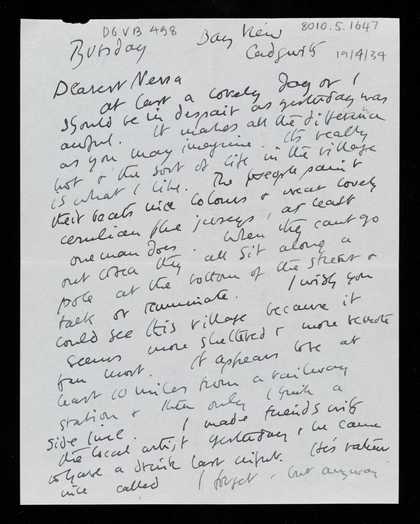 DG.VB 498
8010.5.1647
Bay View
Thursday
Cadgwith
19/4/34
Dearest Nessa
at last a lovely day or I
should be in despair as yesterday was
awful. It makes all the difference
as you may imagine. Its really
hot & the sort of life in the village
is what I like. The people paint
their boats nice colours & wear lovely
cerulian blue jerseys, at least
one man does. When they cant go
out they all sit along a
pole at the bottom of the street &
talk or ruminate. I wish you
could see this village because it
seems more sheltered & more remote
than most. It appears to be at
least 10 miles from a railway
station & then only I think a
side line. I made friends with
the local artist yesterday, he came
to have a drink last night. He's rather
nice called I forget, but anyway